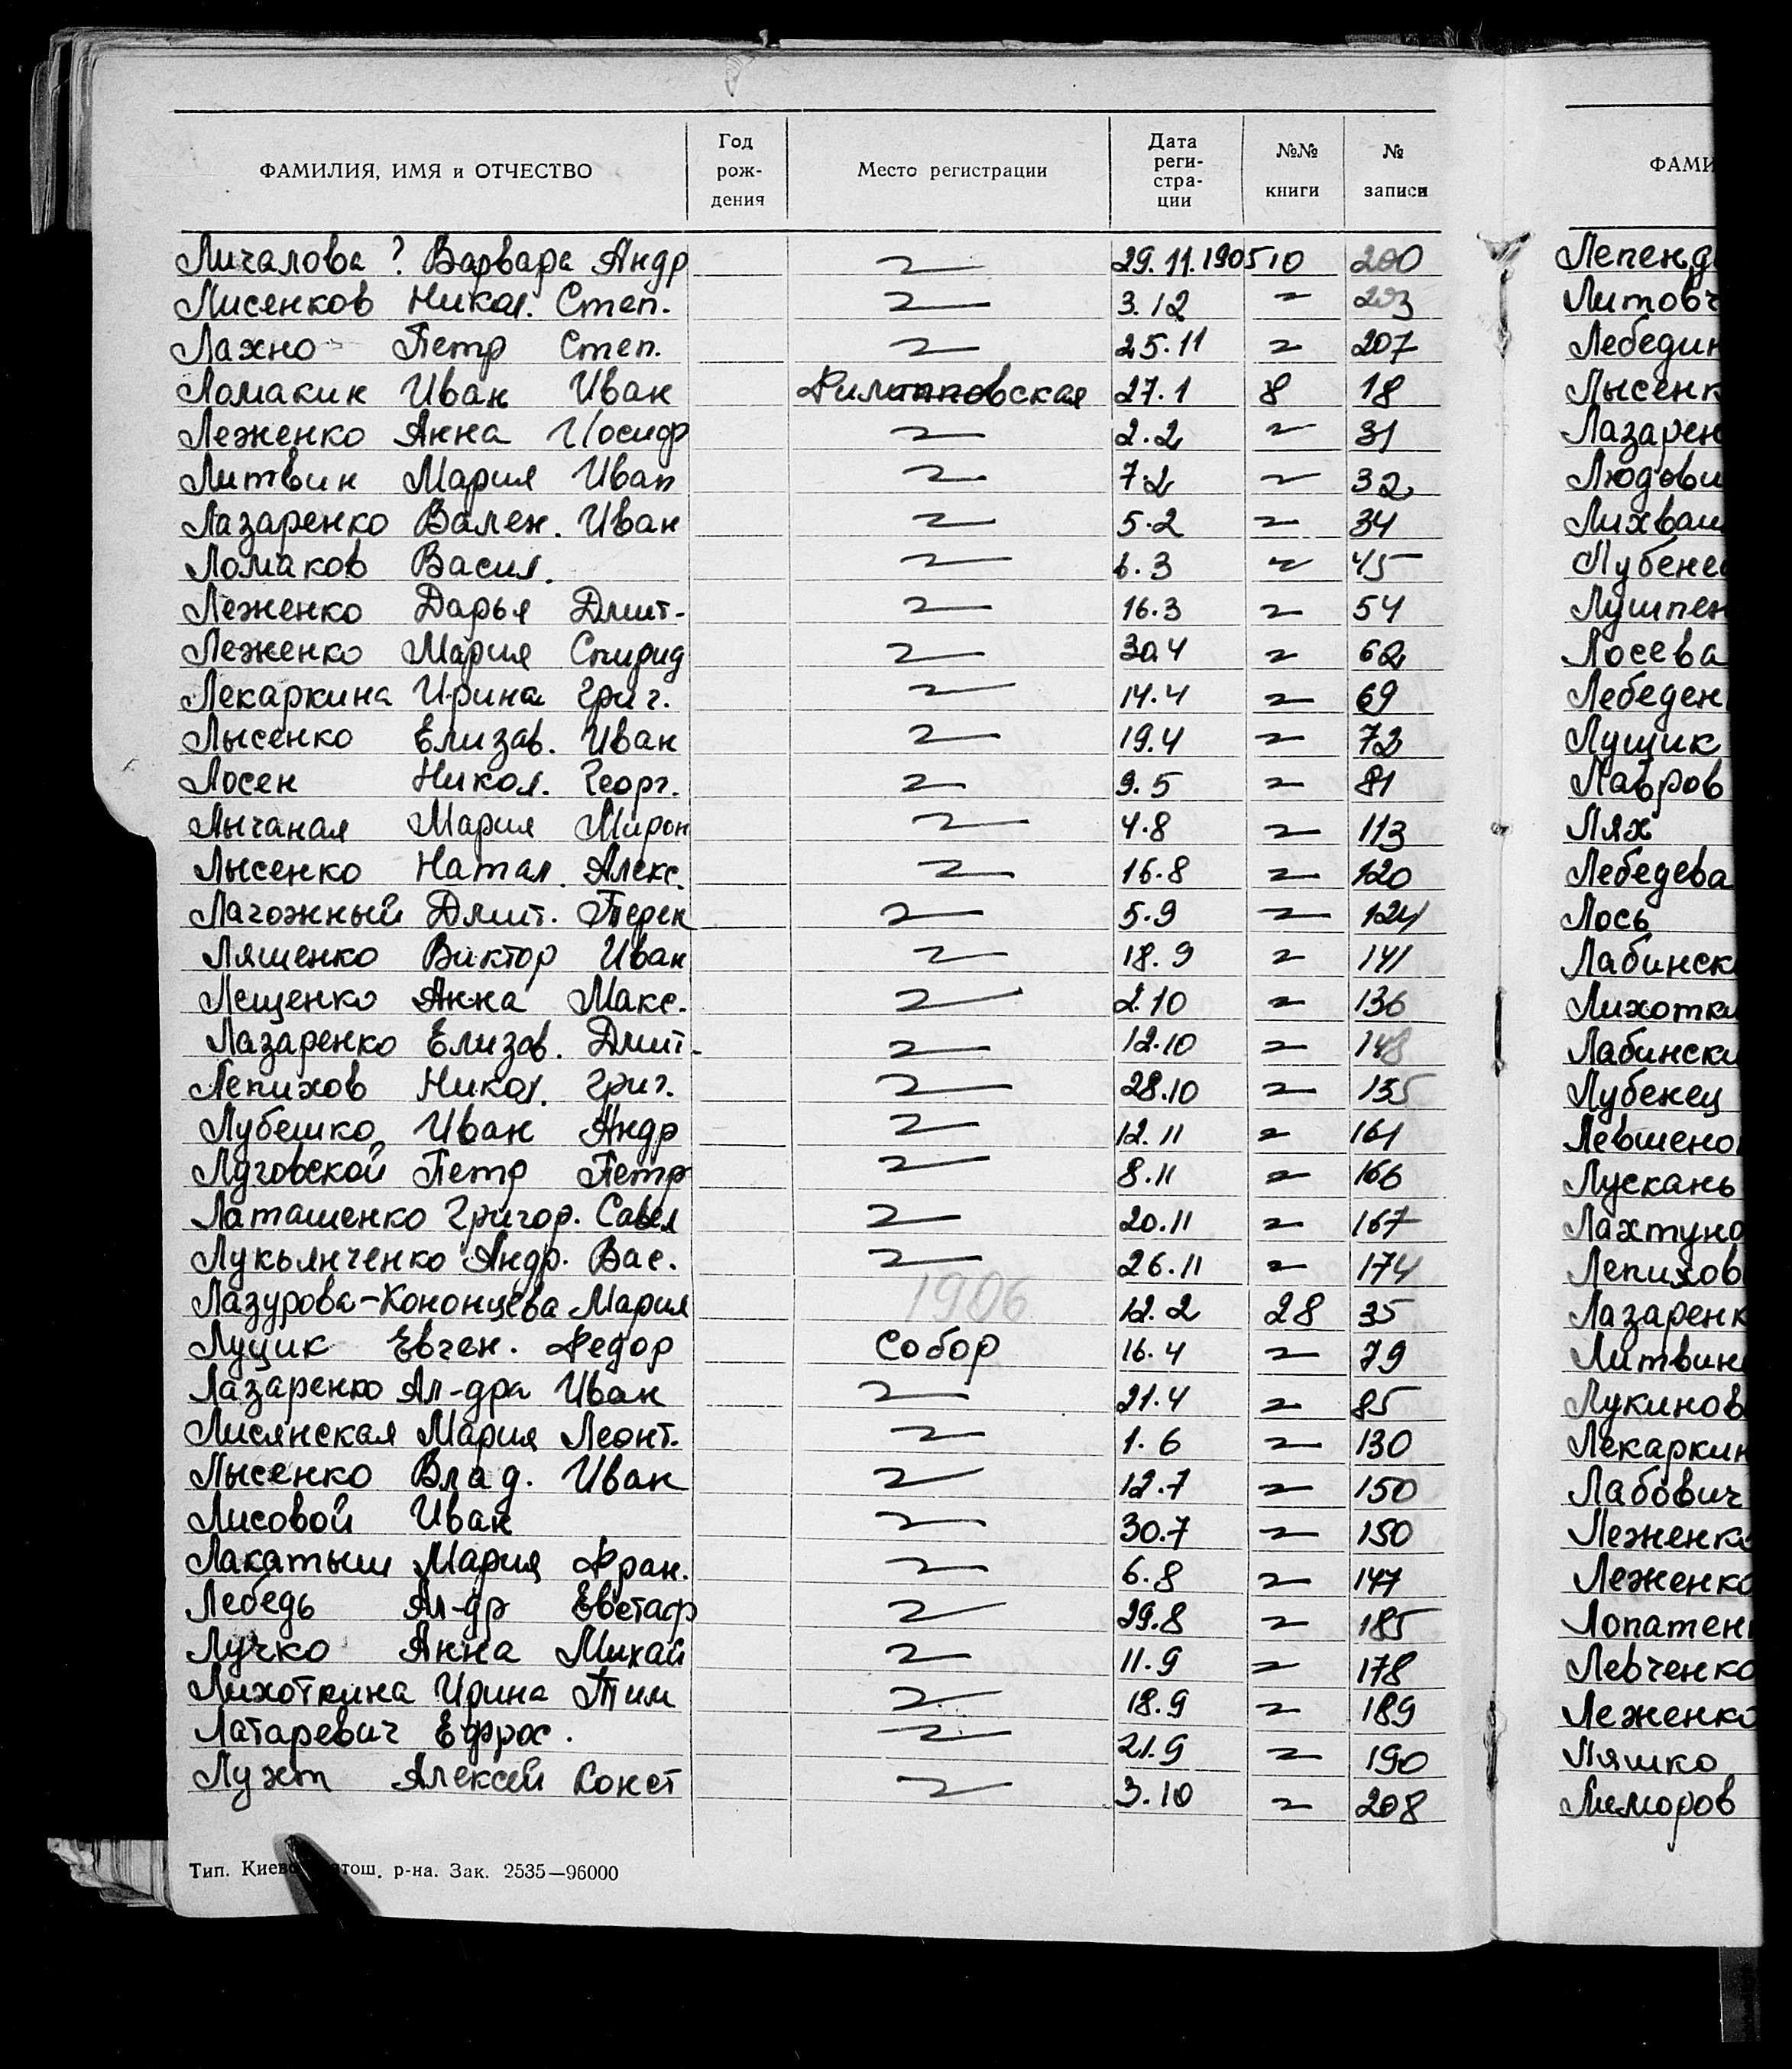 ФАМИЛИЯ, ИМЯ и ОТЧЕСТВО Год рождения Место регистрации Дата регистрации №№ книги № записи
Личалова ? Варвара Андр 29.11.1905 10 200
Лисенков Никол. Степ. 3.12 203
Лахно Петр Степ. 25.11 207
Ломакин Иван Иван Филипповская 27.1 8 18
Леженко Анна Иосиф 2.2 31
Литвин Мария Иван 7.2 32
Лазаренко Вален. Иван 5.2 34
Ломаков Васил. 6.3 45
Леженко Дарья Дмит. 16.3 54
Леженко Мария Спирид 30.4 62
Лекаркина Ирина Григ. 14.4 69
Лысенко Елизав. Иван 19.4 72
Лосен Никол. Георг. 9.5 81
Лычаная Мария Мирон 4.8 113
Лысенко Натал. Алекс. 16.8 120
Лагожный Дмит. Терен 5.9 124
Ляшенко Виктор Иван 18.9 141
Лещенко Анна Макс. 2.10 136
Лазаренко Елизав. Дмит. 12.10 148
Лепихов Никол. Григ. 28.10 155
Лубешко Иван Андр 12.11 161
Луговской Петр Петр 8.11 166
Латашенко Григор. Савел 20.11 167
Лукьянченко Андр. Вас. 26.11 174
1906
Лазурова-Кононцева Мария 12.2 28 35
Луцик Евген. Федор Собор 16.4 79
Лазаренко Ал-дра Иван 21.4 85
Лисянская Мария Леонт. 1.6 130
Лысенко Влад. Иван 12.7 150
Лисовой Иван 30.7 150
Лакатыш Мария Фран. 6.8 147
Лебедь Ал-др Евстаф 29.8 185
Лучко Анна Михай 11.9 178
Лихоткина Ирина Тим 18.9 189
Латаревич Ефрос. 21.9 190
Лухт Алексей Конст 3.10 208
Тип. Киево р-на. Зак. 2535—96000
ФАМИ
Лепенд
Литовч
Лебедин
Лысенк
Лазарен
Людови
Лихваш
Лубене
Лушпен
Лосева
Лебеден
Лущик
Лавров
Лях
Лебедева
Лось
Лабинск
Лихотки
Лабински
Лубенец
Левшено
Лускань
Лахтуно
Лепихов
Лазаренк
Литвин
Лукинов
Лекаркин
Лабович
Леженко
Леженко
Лопатен
Левченко
Леженко
Ляшко
Лиморов